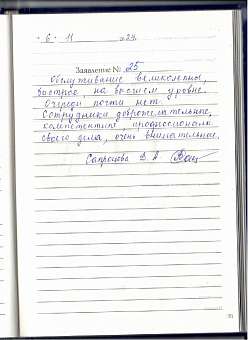 " 6 " 11 2024.
Заявление № 25
Обслуживание великолепны,
быстрое, на высшем уровне.
Очереди почти нет.
Сотрудники доброжелательные,
компетентные, профессионалы
своего дела, очень внимательные.
В. А.
51